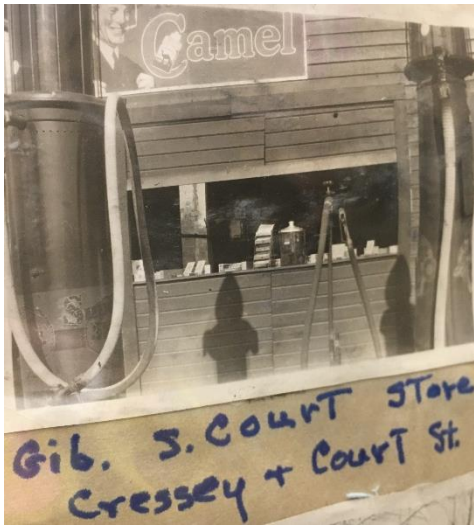 Camel
Gib. S. Court Store
Cressey + Court St.